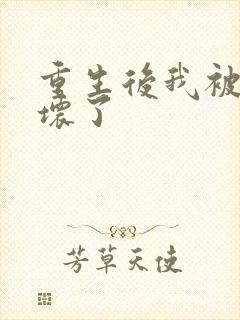 重生後我被
壞了
芳草天使